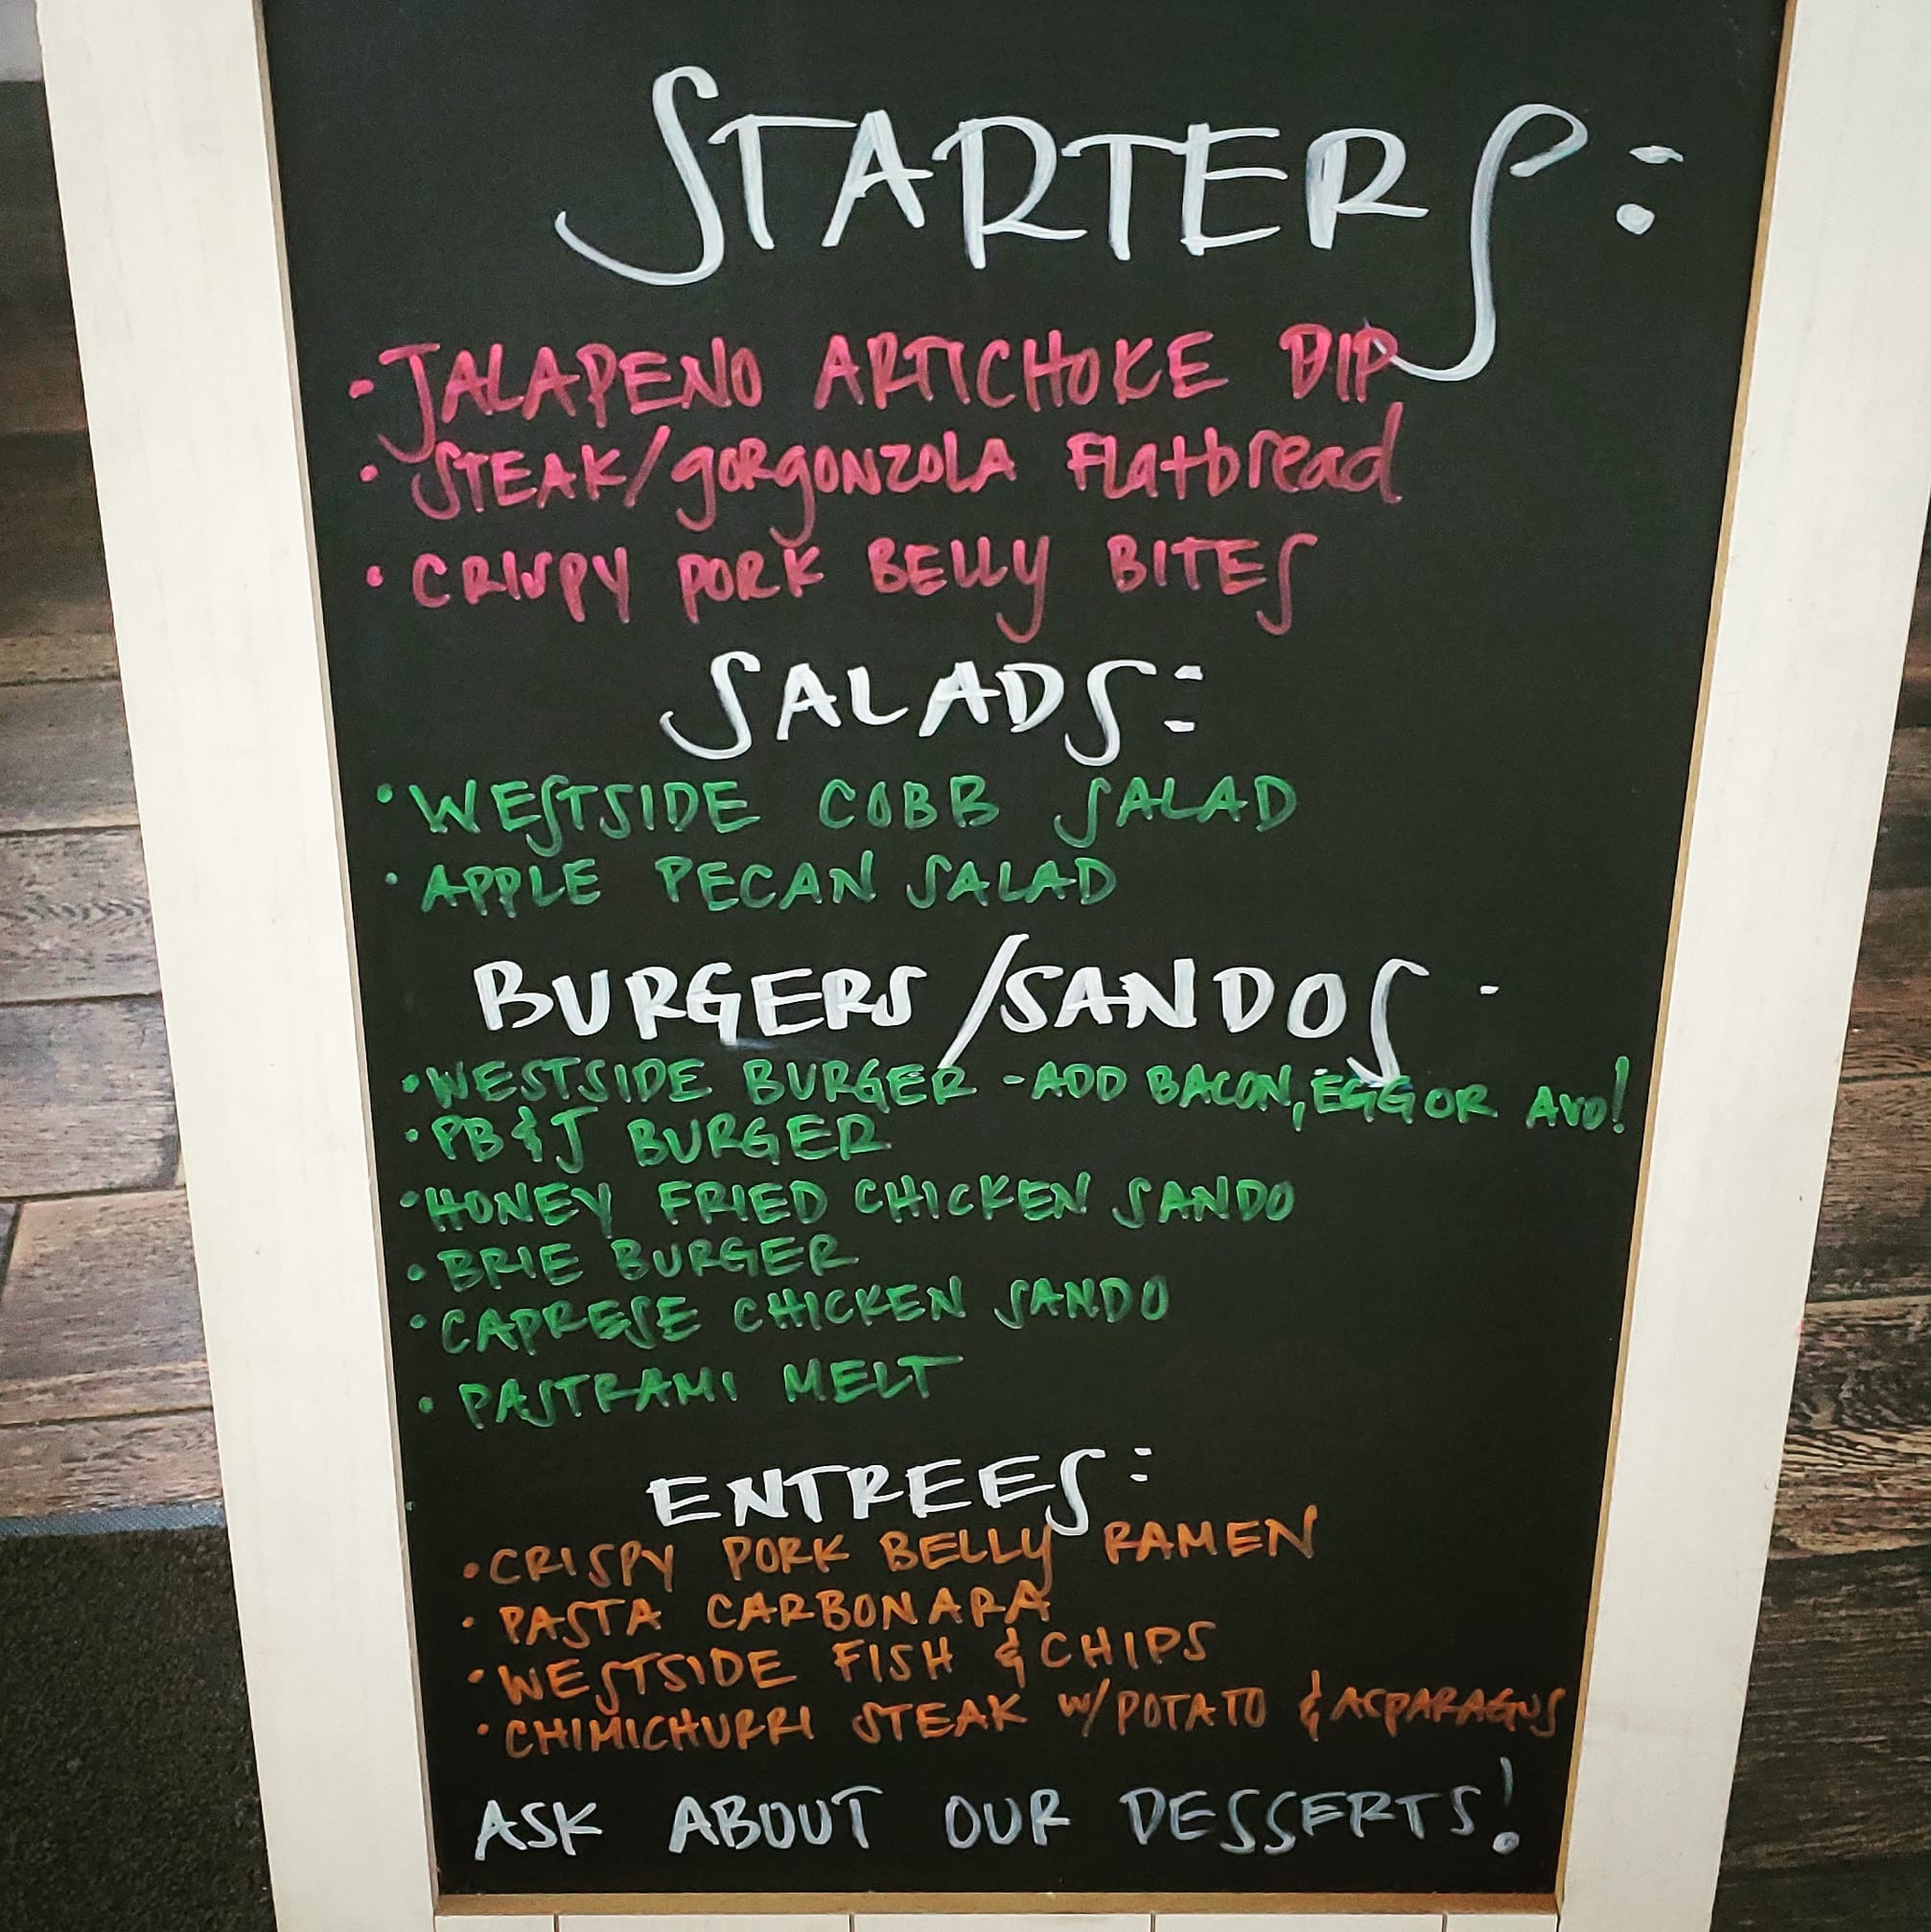 STARTERS:
- JALAPENO ARTICHOKE DIP
• STEAK/gORgONZOLA Flatbread
• CRISPY PORK BELLY BITES
SALADS:
• WESTSIDE COBB SALAD
• APPLE PECAN SALAD
BURGERS/SANDOS -
• WESTSIDE BURGER - ADD BACON, EGG OR AVO!
• PB&J BURGER
• HONEY FRIED CHICKEN SANDO
• BRIE BURGER
• CAPRESE CHICKEN SANDO
• PASTRAMI MELT
ENTREES:
• CRISPY PORK BELLY RAMEN
• PASTA CARBONARA
• WESTSIDE FISH & CHIPS
• CHIMICHURRI STEAK W/POTATO & ASPARAGUS
ASK ABOUT OUR DESSERTS!